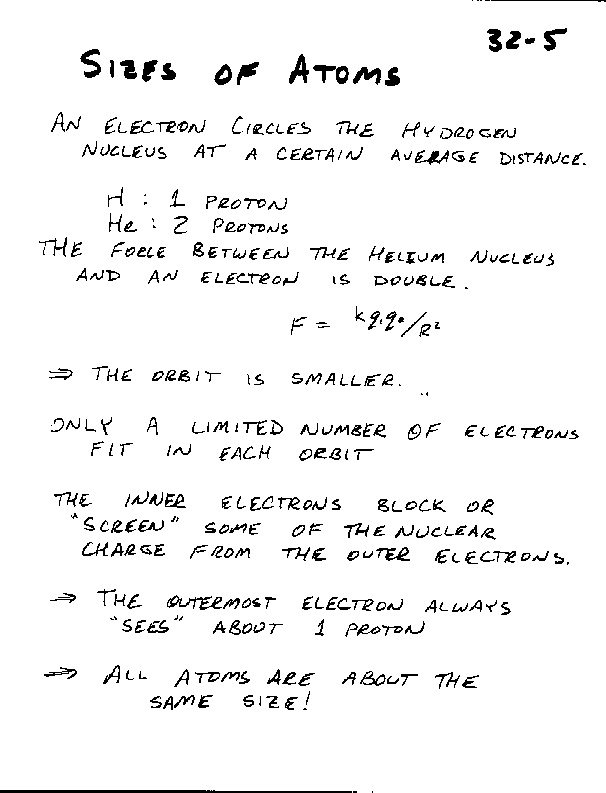 32-5
SIZES OF ATOMS
AN ELECTRON CIRCLES THE HYDROGEN
NUCLEUS AT A CERTAIN AVERAGE DISTANCE.
H : 1 PROTON
He : 2 PROTONS
THE FORCE BETWEEN THE HELIUM NUCLEUS
AND AN ELECTRON IS DOUBLE.
F = kq.q./R²
⇒ THE ORBIT IS SMALLER.
ONLY A LIMITED NUMBER OF ELECTRONS
FIT IN EACH ORBIT
THE INNER ELECTRONS BLOCK OR
"SCREEN" SOME OF THE NUCLEAR
CHARGE FROM THE OUTER ELECTRONS.
⇒ THE OUTERMOST ELECTRON ALWAYS
"SEES" ABOUT 1 PROTON
⇒ ALL ATOMS ARE ABOUT THE
SAME SIZE!